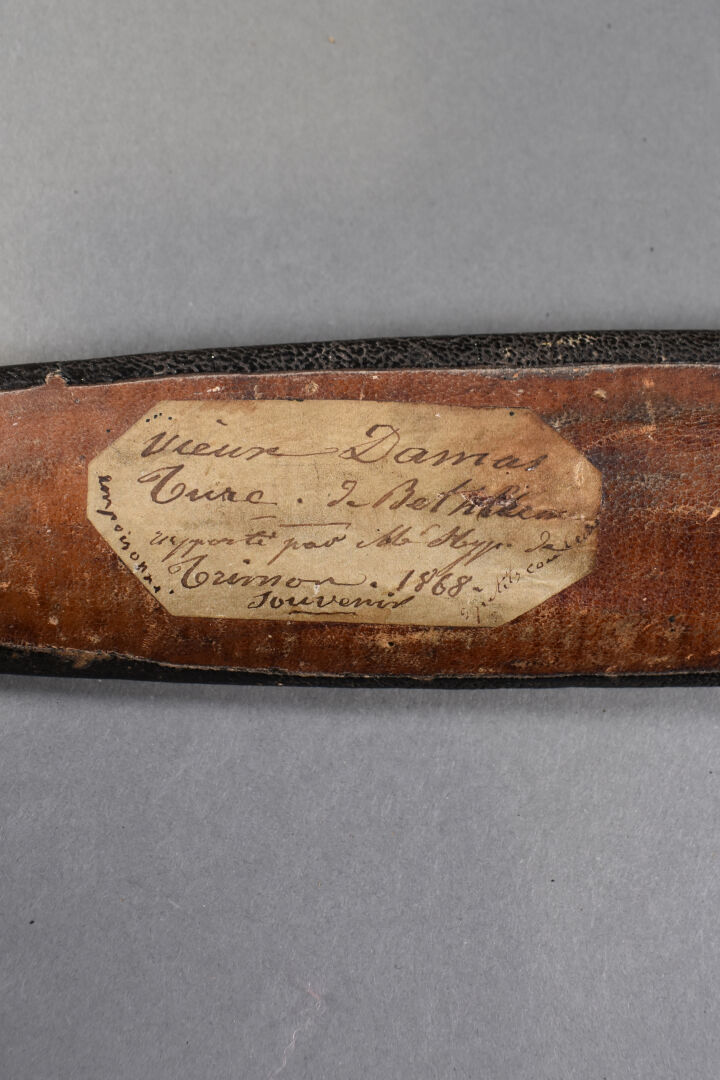 Vieux Damas
Turc. de Bethléem
rapporté par Mr Hyp. de
Trimon. 1868.
Souvenir
empoisonné.
2 petits couteaux